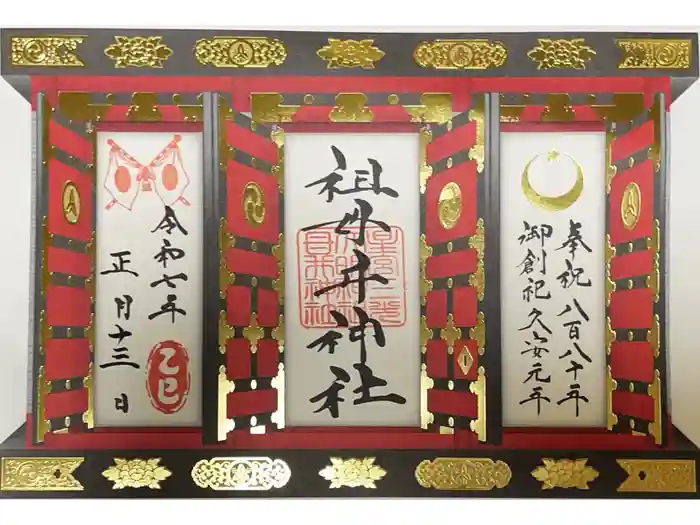 奉祝 八百八十年
御創祀久安元年
祖母井神社
令和七年
正月十三日
乙巳